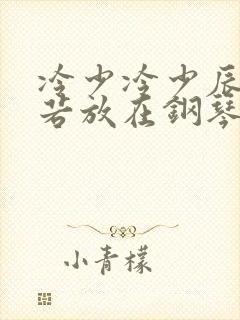 冷少冷少辰
若放在鋼琴
小青檬